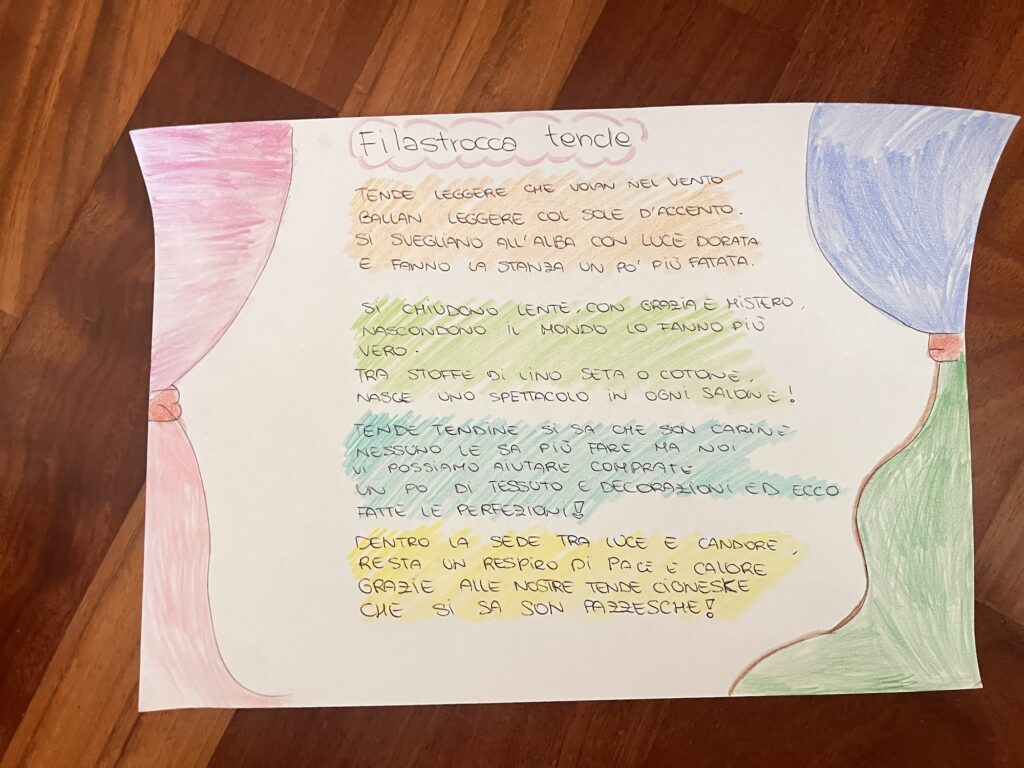 Filastrocca tende
TENDE LEGGERE CHE VOLAN NEL VENTO
BALLAN LEGGERE COL SOLE D'ACCENTO.
SI SVEGLIANO ALL'ALBA CON LUCE DORATA
E FANNO LA STANZA UN PO' PIÙ FATATA.
SI CHIUDONO LENTE, CON GRAZIA E MISTERO,
NASCONDONO IL MONDO LO FANNO PIÙ
VERO.
TRA STOFFE DI LINO SETA O COTONE,
NASCE UNO SPETTACOLO IN OGNI SALONE!
TENDE TENDINE SI SA CHE SON CARINE
NESSUNO LE SA PIÙ FARE MA NOI
VI POSSIAMO AIUTARE COMPRATE
UN PO DI TESSUTO E DECORAZIONI ED ECCO
FATTE LE PERFEZIONI!
DENTRO LA SEDE TRA LUCE E CANDORE,
RESTA UN RESPIRO DI PACE E CALORE
GRAZIE ALLE NOSTRE TENDE CIGNESKE
CHE SI SA SON PAZZESCHE!